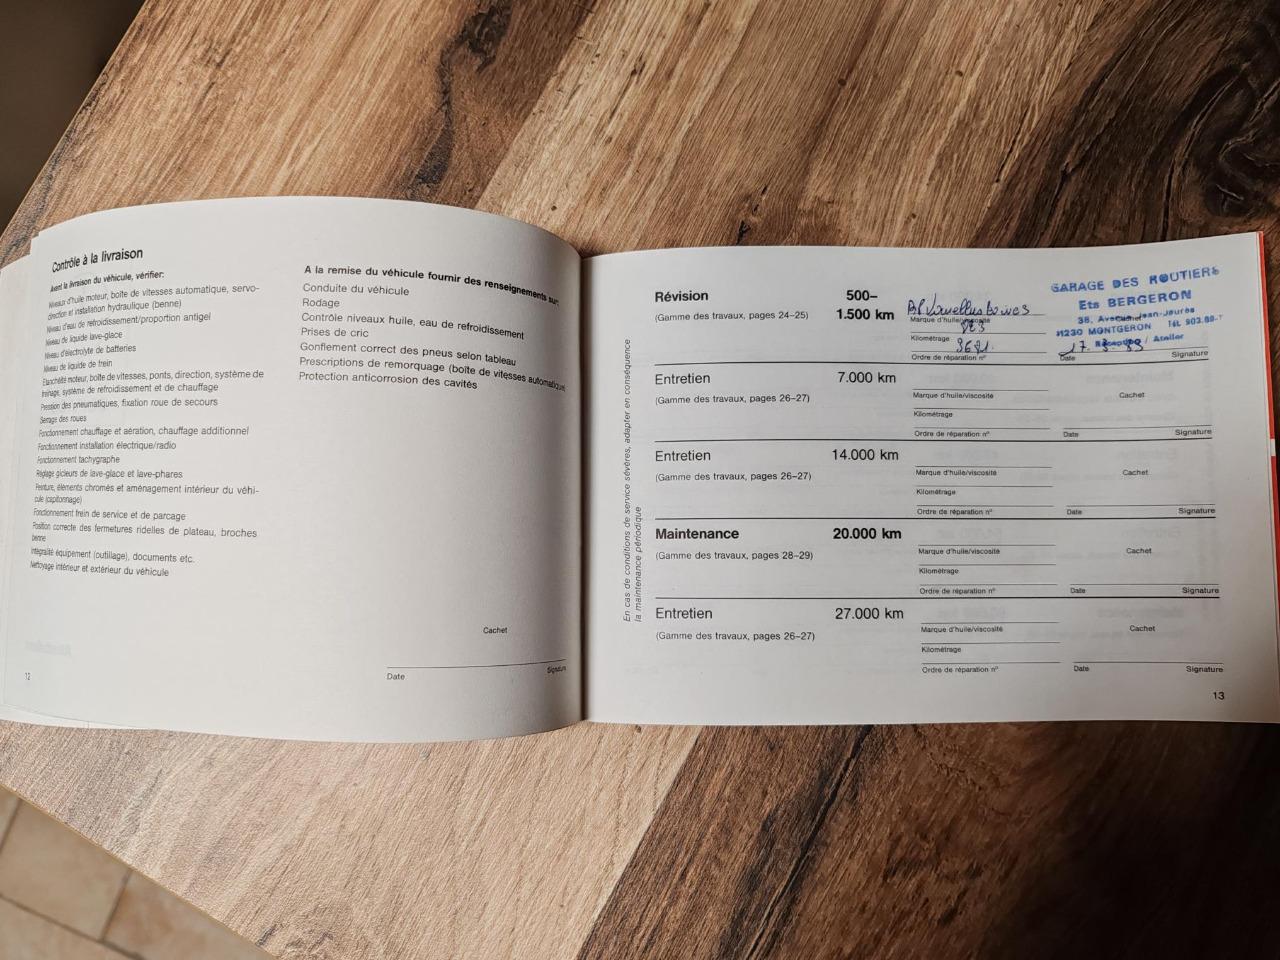 Contrôle à la livraison
Avant la livraison du véhicule, vérifier:
Niveaux d'huile moteur, boîte de vitesses automatique, servo-
direction et installation hydraulique (benne)
Niveau d'eau de refroidissement/proportion antigel
Niveau de liquide lave-glace
Niveau d'électrolyte de batteries
Niveau de liquide de frein
Etanchéité moteur, boîte de vitesses, ponts, direction, système de
freinage, système de refroidissement et de chauffage
Pression des pneumatiques, fixation roue de secours
Serrage des roues
Fonctionnement chauffage et aération, chauffage additionnel
Fonctionnement installation électrique/radio
Fonctionnement tachygraphe
Réglage gicleurs de lave-glace et lave-phares
Peinture, éléments chromés et aménagement intérieur du véhi-
cule (capitonnage)
Fonctionnement frein de service et de parcage
Position correcte des fermetures ridelles de plateau, broches
benne
Intégralité équipement (outillage), documents etc.
Nettoyage intérieur et extérieur du véhicule
12
A la remise du véhicule fournir des renseignements sur:
Conduite du véhicule
Rodage
Contrôle niveaux huile, eau de refroidissement
Prises de cric
Gonflement correct des pneus selon tableau
Prescriptions de remorquage (boîte de vitesses automatique)
Protection anticorrosion des cavités
Cachet
Date Signature
En cas de conditions de service sévères, adapter en conséquence
la maintenance périodique
Révision 500–
1.500 km
(Gamme des travaux, pages 24–25)
BP
Marque d'huile/viscosité
Kilométrage
Ordre de réparation n°
GARAGE DES ROUTIERS
Ets BERGERON
38, Avenue Jean-Jaurès
91230 MONTGERON Tél. 903.
Réception / Atelier
17. 3. 83
Date Signature
Entretien 7.000 km
(Gamme des travaux, pages 26–27)
Marque d'huile/viscosité Cachet
Kilométrage
Ordre de réparation n° Date Signature
Entretien 14.000 km
(Gamme des travaux, pages 26–27)
Marque d'huile/viscosité Cachet
Kilométrage
Ordre de réparation n° Date Signature
Maintenance 20.000 km
(Gamme des travaux, pages 28–29)
Marque d'huile/viscosité Cachet
Kilométrage
Ordre de réparation n° Date Signature
Entretien 27.000 km
(Gamme des travaux, pages 26–27)
Marque d'huile/viscosité Cachet
Kilométrage
Ordre de réparation n° Date Signature
13